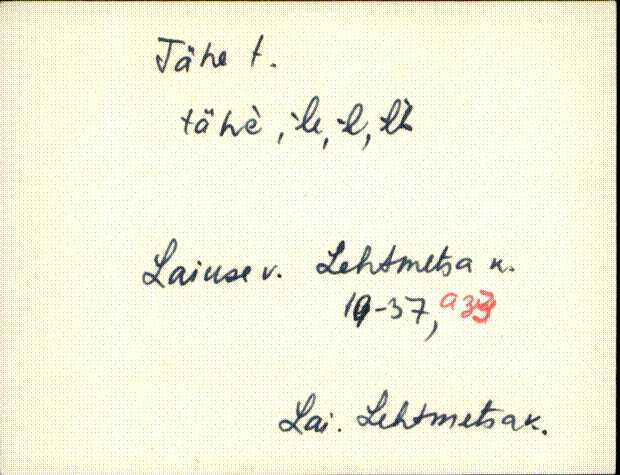 Tähe t.
tähè, -le, -l, -lt
Laiuse v. Lehtmetsa k.
19-37, a33
Lai. Lehtmetsa k.